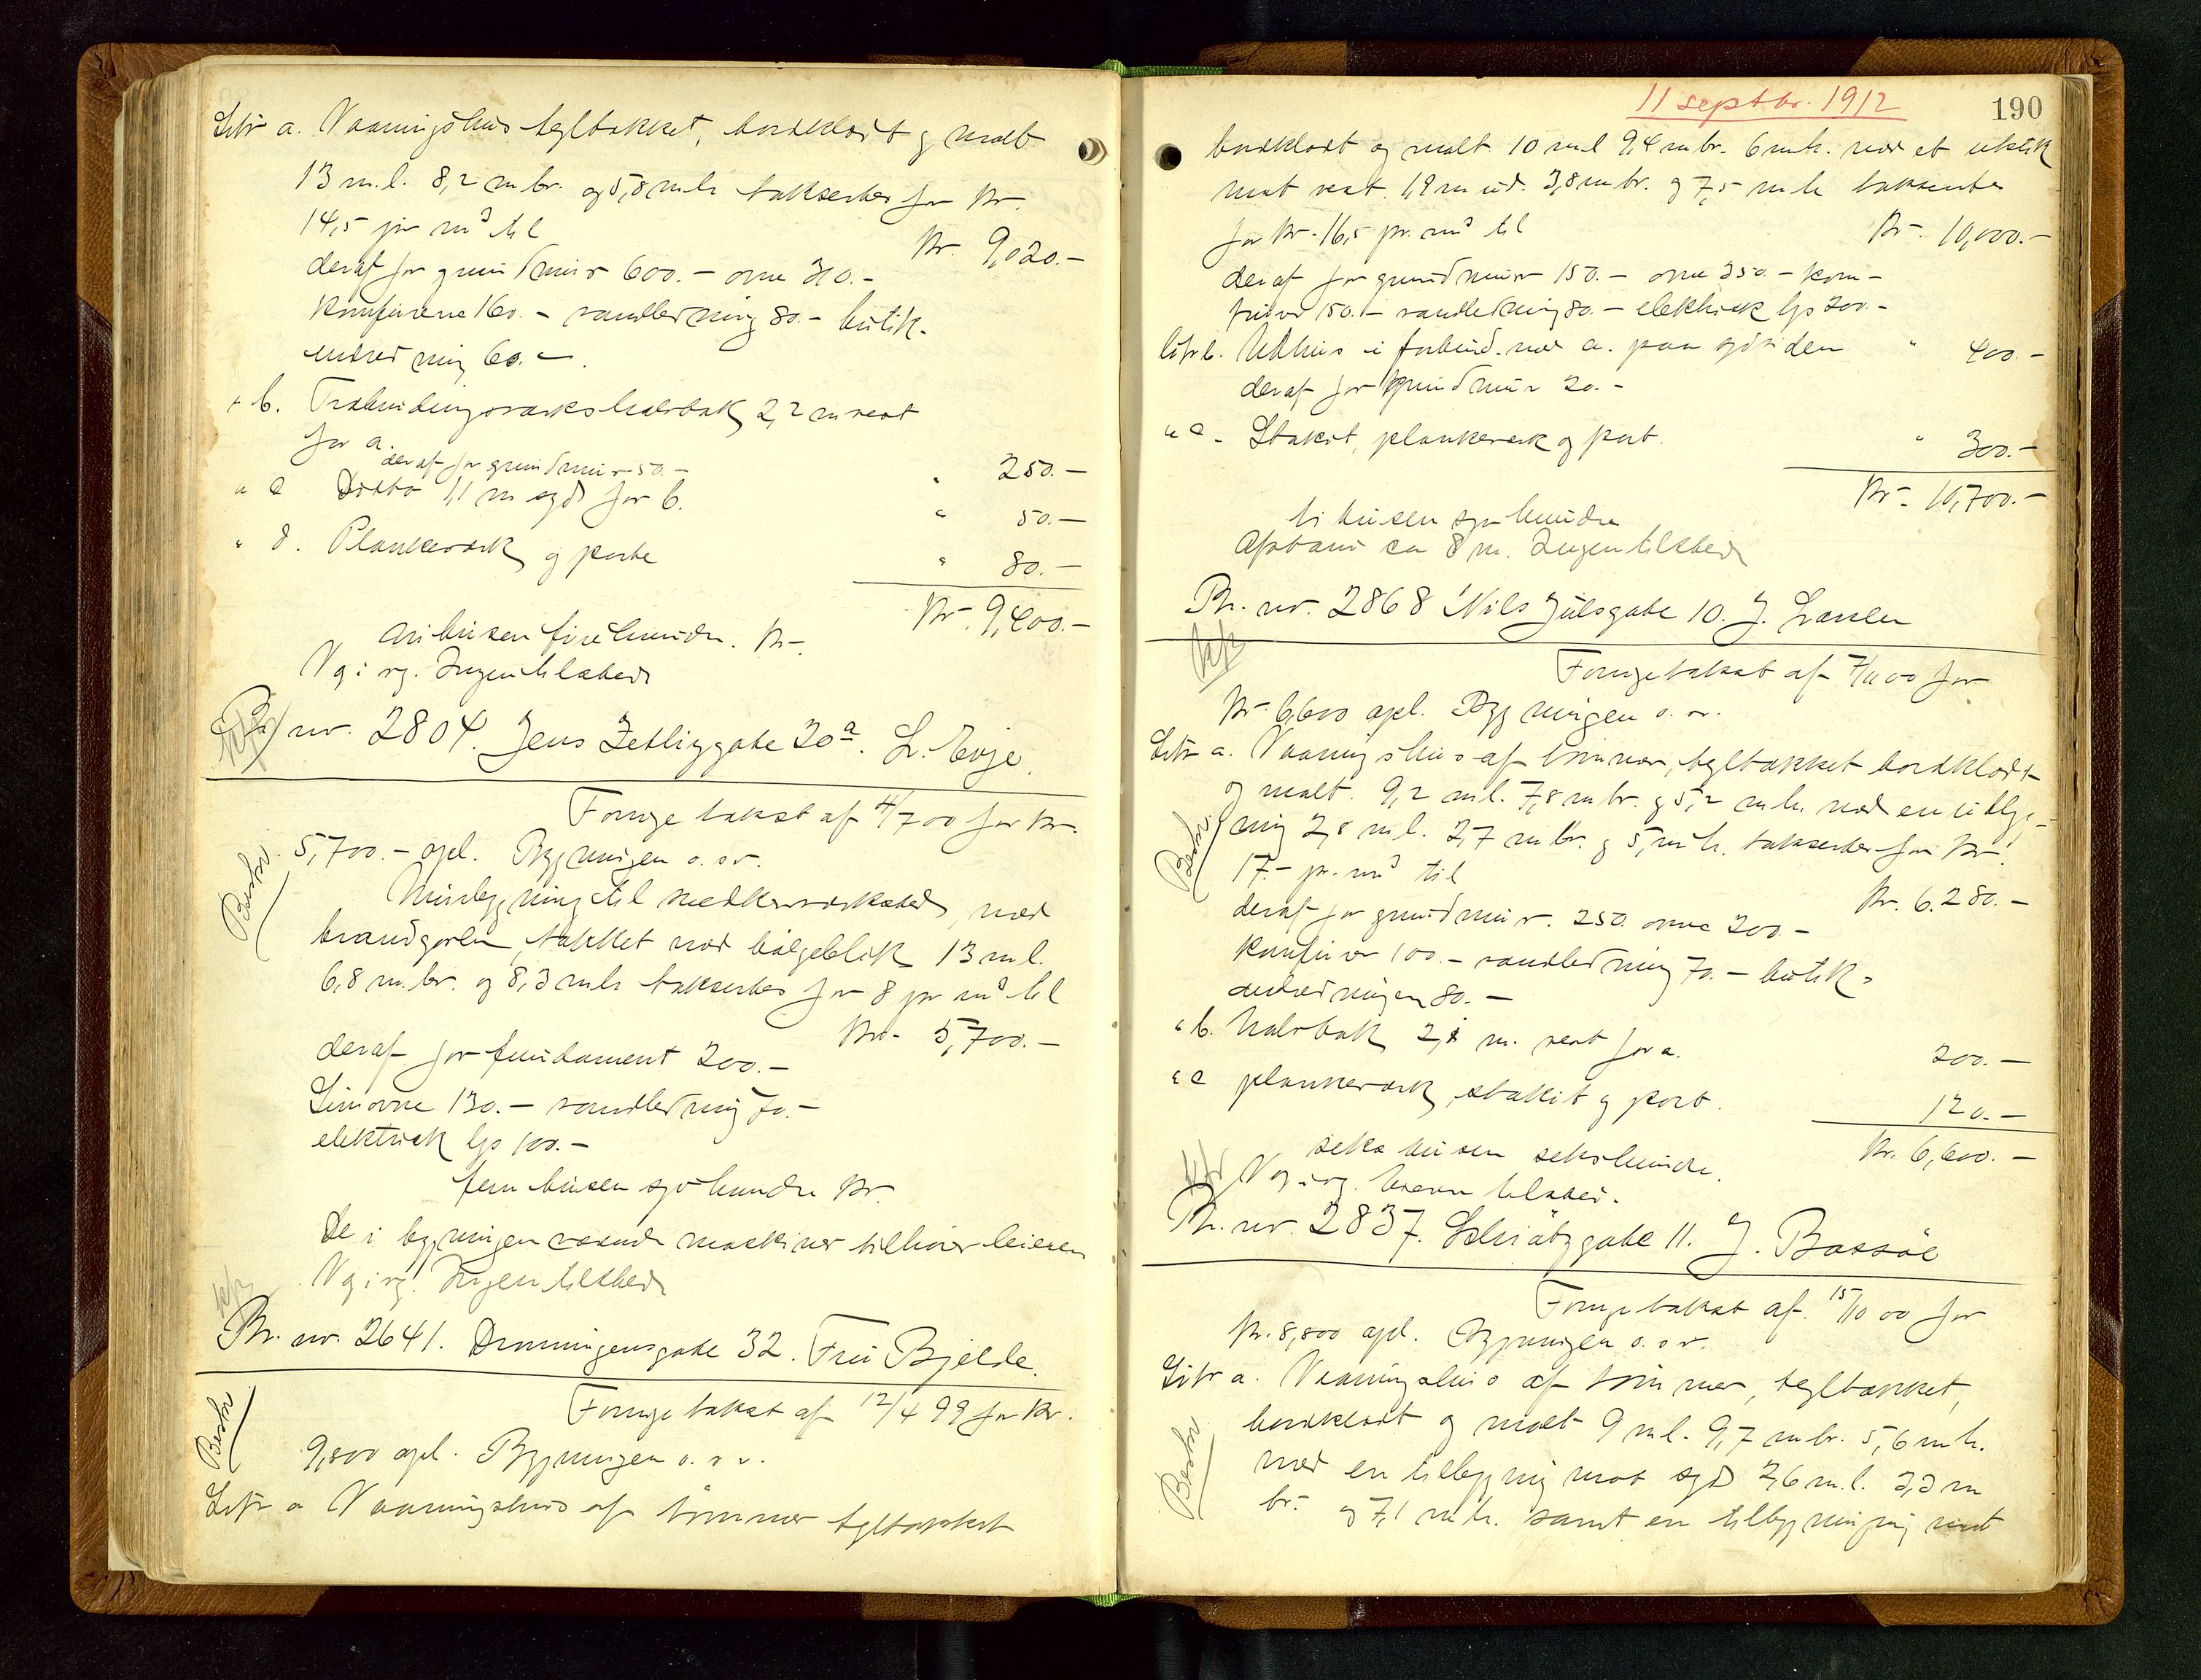 Litr a. Vaaningshus tegltækket, bordklædt og malt
13 m.l. 8,2 m br. og 5,8 m h takseres for Kr.
14,5 pr m³ til
Kr. 9,020.-
deraf for grundmur 600.- ovne 310.-
komfurene 160.- vandledning 80.- butik-
indredning 60.-
" b. Træbindingsverkshalvtak 2,2 m vest
for a.
deraf for grundmur 50.-
" 250.-
" c Ditto 1,1 m syd for b.
" 50.-
" d. Plankeværk og porte
" 80.-
Kr. 9,400.-
ni tusen fire hundre. Kr.
V g i rg. Ingen tilstede
Br. nr. 2804. Jens Zetlizgate 20a. L. Evje.
Forrige takst af 4/7 00 for Kr.
Beskr.
5,700.- opl. Bygningen o. s v.
Murbygning til snedkerverksted, med
brandgavler, tækket med bølgeblik 13 m l.
6,8 m. br. og 8,3 m h takseres for 8 pr m³ til
Kr. 5,700.-
deraf for fundament 200.-
Limovne 130.- vandledning 70.-
elektrisk lys 100.-
fem tusen syv hundre Kr.
De i bygningen værende maskiner tilhører leieren
V g i rg. Ingen tilstede
Br. nr. 2641. Dronningensgate 32. Fru Bjelde.
Forrige takst af 12/4 99 for Kr.
Beskr
9,800 opl. Bygningen o. s v.
Litr a Vaaningshus af tømmer tegltækket
11 septbr. 1912
190
bordklædt og malt 10 m l 9,4 m br. 6 m h. med et utstik
mot vest. 1,9 m ud. 3,8 m br. og 7,5 m h takseres
for Kr. 16,5 pr. m³ til
Kr. 10,000.-
deraf for grundmur 150.- ovne 350.- kom-
furer 150.- vandledning 80.- elektrisk lys 200.-
Litr b. Udhus i forbind. med a. paa sydsiden
" 400.-
deraf for grundmur 20.-
" c. Stakit, plankeverk og port.
" 300.-
Kr. 10,700.-
ti tusen syv hundre
Afstand ca 8 m. Ingen tilsted
Br. nr. 2868 Nils Juelsgate 10. J. Larsen
Forrige takst af 7/11 00 for
Kr. 6,600 opl. Bygningen o. s v.
Litr a. Vaaningshus af tømmer, tegltækket bordklædt
og malt. 9,2 m l. 7,8 m br. og 5,2 m h. med en utbyg-
Beskr.
ning 2,8 m l. 2,7 m br. og 5, m h. takseres for Kr.
17.- pr. m³ til
Kr. 6.280.-
deraf for grundmur. 250. ovne 200.-
komfurer 100.- vandledning 70.- butik-
indredningen 80.-
" b. Halvtak 2,1 m. vest for a.
200.-
" c plankeverk, stakit og port.
120.-
Kr. 6,600.-
seks tusen sekshundre.
V g i rg. Eieren tilsted.
Br. nr. 2837. Schiøtzgate 11. J. Bassøe
Forrige takst af 15/10 00 for
Kr. 8,800 opl. Bygningen o. s v.
Litr a. Vaaningshus af tømmer, tegltækket,
bordklædt og malt 9 m l. 9,7 m br. 5,6 m h.
Beskr.
med en tilbygning mot syd 2,6 m. l. 3,3 m
br. og 7,1 m h. samt en tilbygning mot